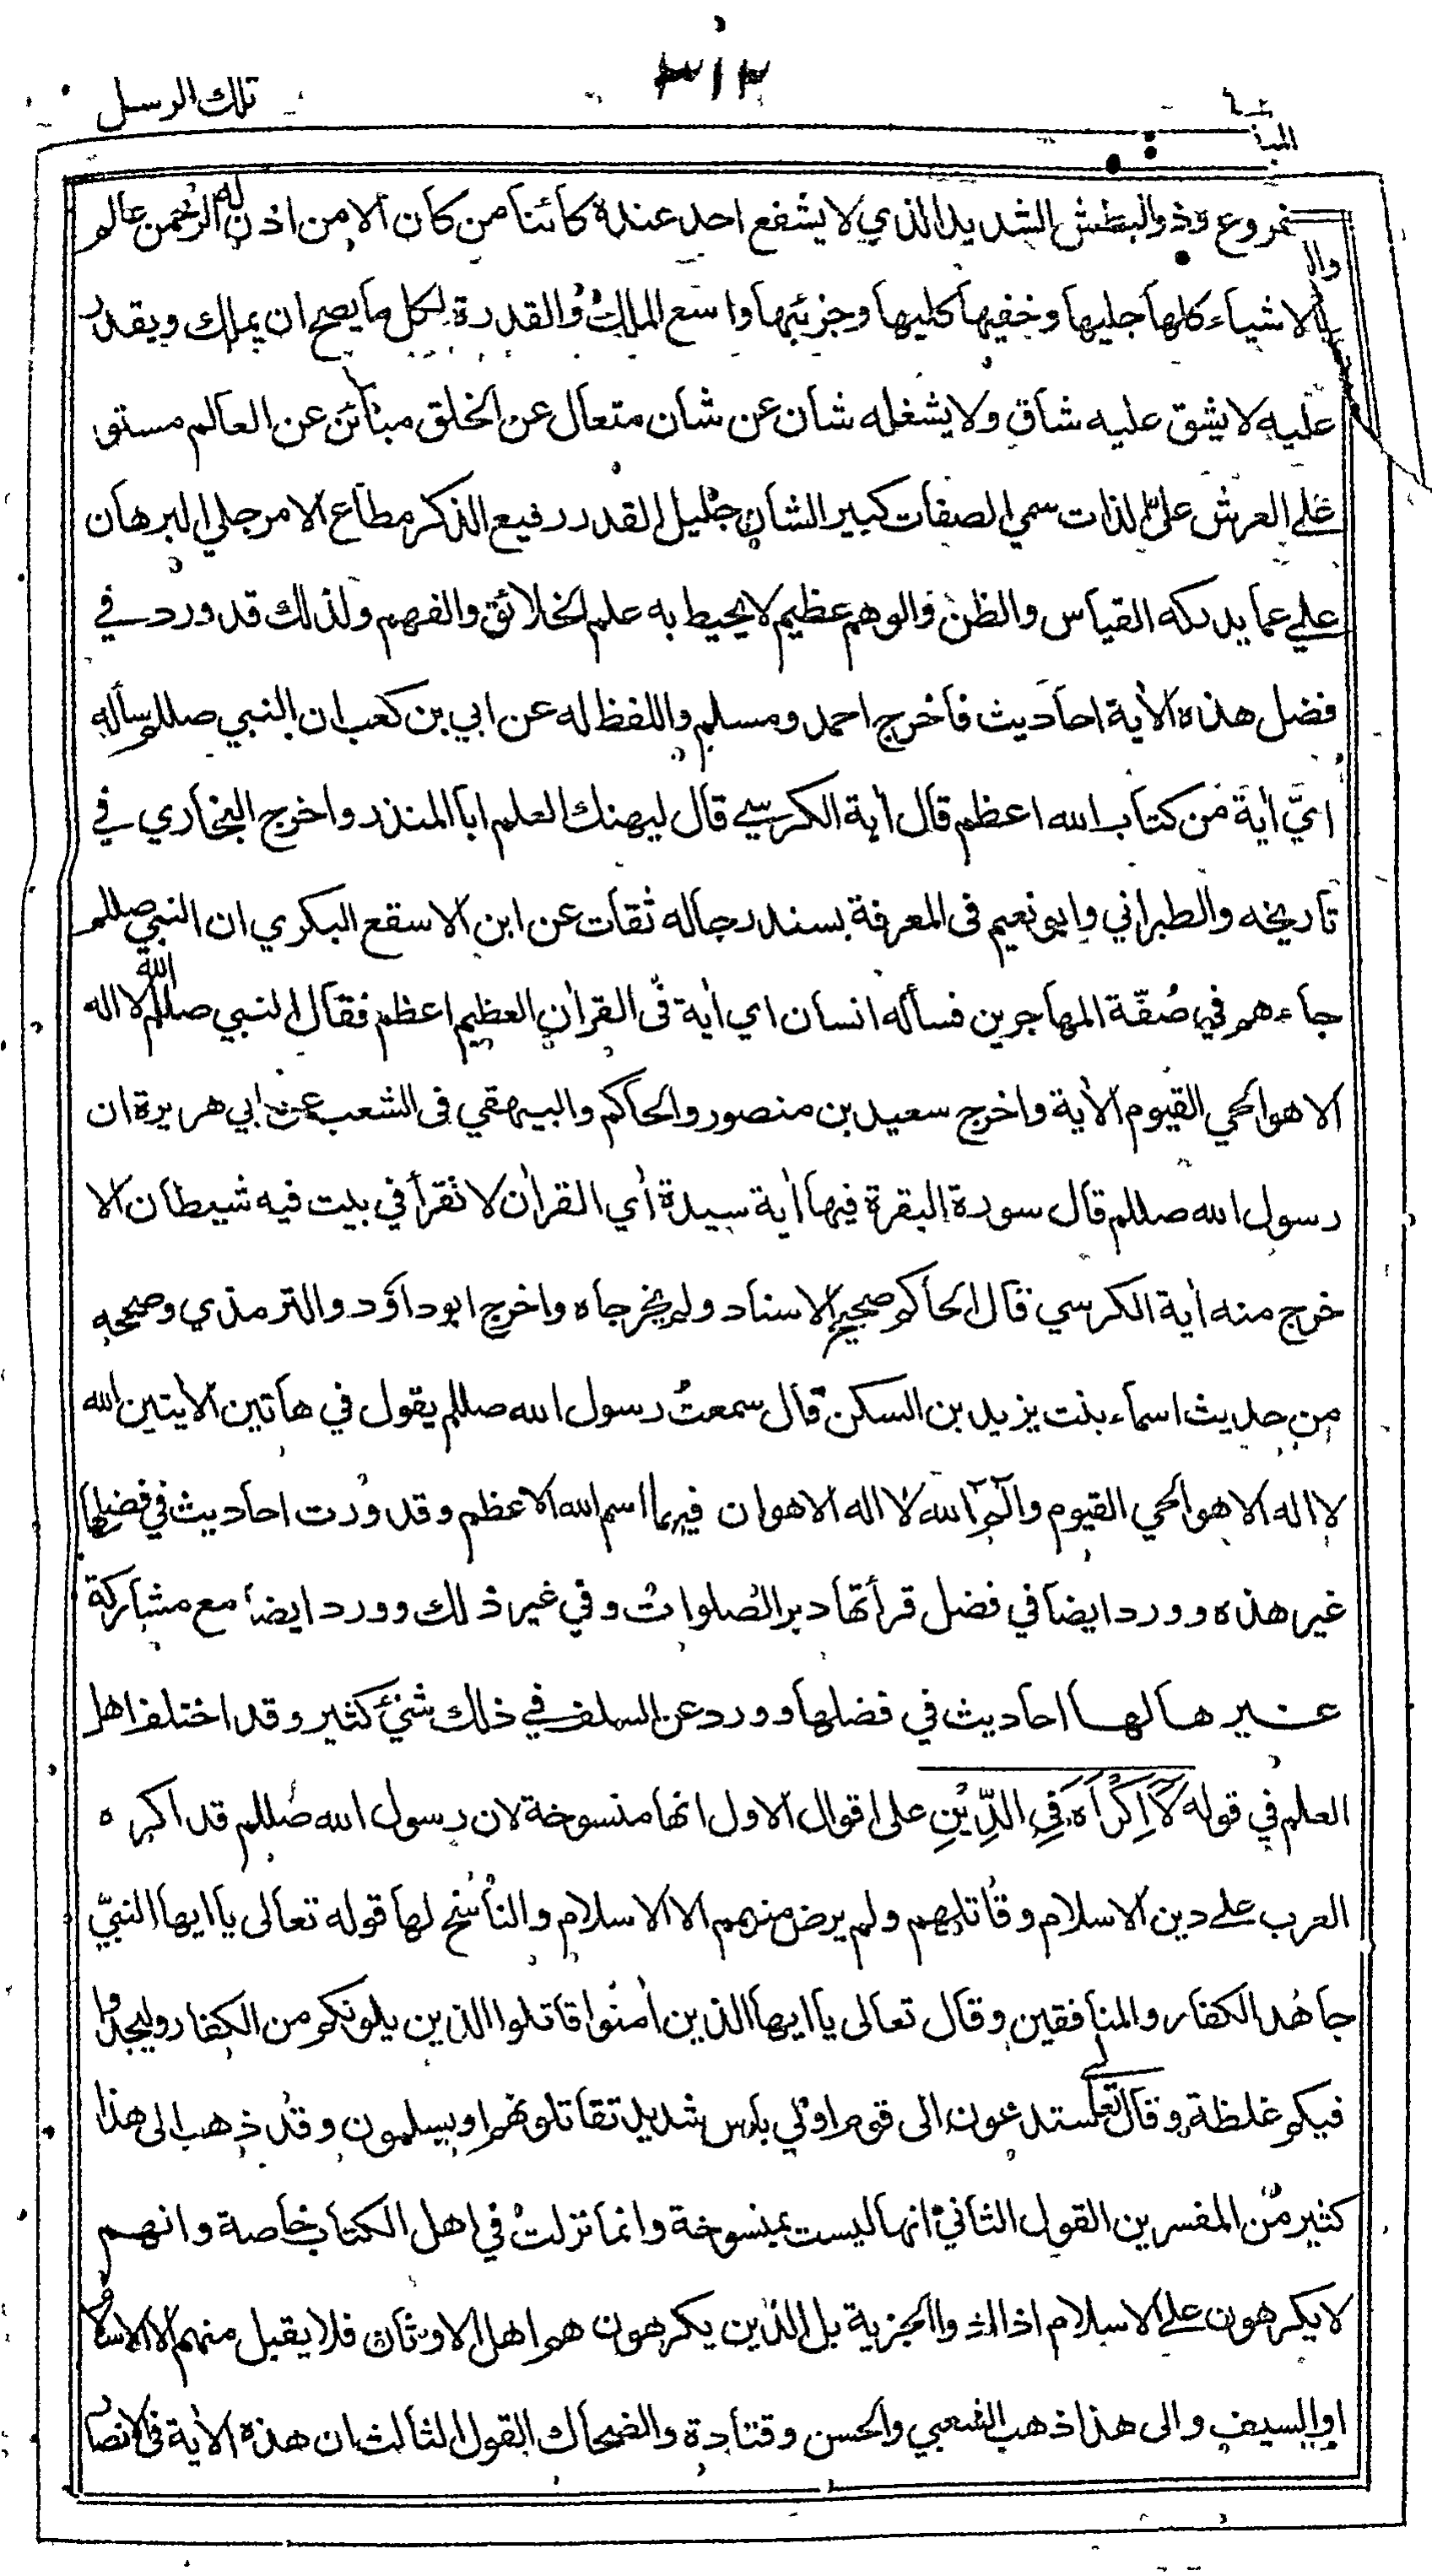 تلك الرسل
٣١٢
وذو البطش الشديد الذي لا يشفع احد عنده كائنا من كان الا من اذن له الرحمن عالم
بالاشياء كلها جليها وخفيها كليها وجزئيها واسع الملك والقدرة لكل ما يصح ان يملك ويقدر
عليه لا يشق عليه شاق ولا يشغله شان عن شان متعال عن الخلق مبائن عن العالم مستو
على العرش علي الذات سمي الصفات كبير الشان جليل القدر رفيع الذكر مطاع الامر جلي البرهان
علي عما يدركه القياس والظن والوهم عظيم لا يحيط به علم الخلائق والفهم ولذلك قد ورد في
فضل هذه الاٰية احاديث فاخرج احمد ومسلم واللفظ له عن ابي بن كعب ان النبي صللم سأله
ايّ اٰية من كتاب الله اعظم قال اٰية الكرسي قال ليهنك العلم ابا المنذر واخرج البخاري في
تاريخه والطبراني وابو نعيم فى المعرفة بسند رجاله ثقات عن ابن الاسقع البكري ان النبي صللم
جاءهم في صُفّة المهاجرين فسأله انسان اي اٰية فى القراٰن العظيم اعظم فقال النبي صللم الله لا اله
الا هو الحي القيوم الاٰية واخرج سعيد بن منصور والحاكم والبيهقي فى الشعب عن ابي هريرة ان
رسول الله صللم قال سورة البقرة فيها اٰية سيدة اٰي القراٰن لا تقرأ في بيت فيه شيطان الا
خرج منه اٰية الكرسي قال الحاكم صحيح الاسناد ولم يخرجاه واخرج ابو داؤد والترمذي وصححه
من حديث اسماء بنت يزيد بن السكن قال سمعت رسول الله صللم يقول في هاتين الاٰيتين الله
لا اله الا هو الحي القيوم والٓمٓ الله لا اله الا هو ان فيهما اسم الله الاعظم وقد وردت احاديث في فضلها
غير هذه وورد ايضا في فضل قرأتها دبر الصلوات وفي غير ذلك وورد ايضا مع مشاركة
غيرها لها احاديث في فضلها وورد عن السلف في ذلك شئ كثير وقد اختلف اهل
العلم في قوله لَآ اِكْرَاهَ فِي الدِّيْنِ على اقوال الاول انها منسوخة لان رسول الله صللم قد اكره
العرب على دين الاسلام وقاتلهم ولم يرض منهم الا الاسلام والناسخ لها قوله تعالى يا ايها النبيّ
جاهد الكفار والمنافقين وقال تعالى يا ايها الذين اٰمنوا قاتلوا الذين يلونكم من الكفار وليجدوا
فيكم غلظة وقال تعالى ستدعون الى قوم اولي بأس شديد تقاتلونهم او يسلمون وقد ذهب الى هذا
كثير من المفسرين القول الثاني انها ليست بمنسوخة وانما نزلت في اهل الكتاب خاصة وانهم
لا يكرهون على الاسلام اذا ادوا الجزية بل الذين يكرهون هم اهل الاوثان فلا يقبل منهم الا الاسلام
او السيف والى هذا ذهب الشعبي والحسن وقتادة والضحاك القول الثالث ان هذه الاٰية فى الانصار